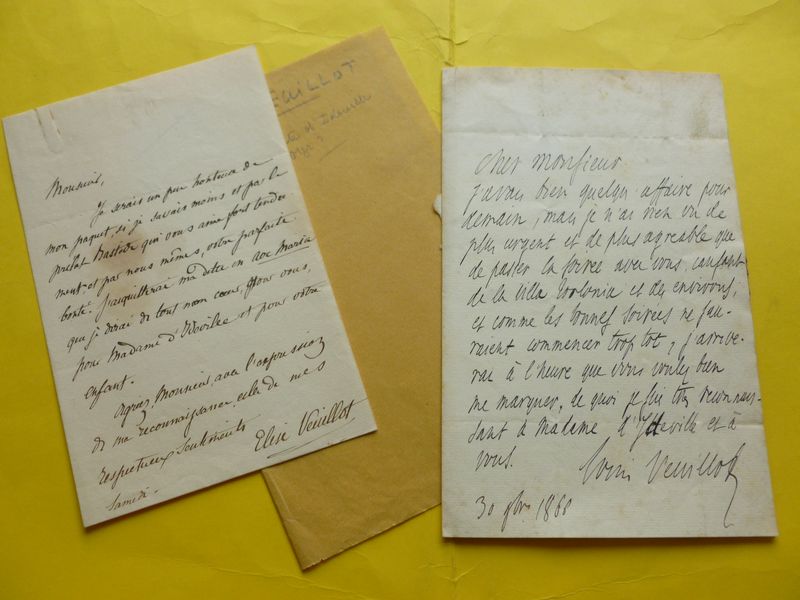 Monsieur,
Je serais un peu honteuse de
mon paquet si je savais moins et par le
prélat Bastide qui vous aime fort tendre
ment, et par nous mêmes, votre parfaite
bonté. J'acquitterai ma dette en ave Maria
que je dirai de tout mon coeur, pour vous,
pour Madame d' et pour votre
enfant.
Agréez, Monsieur, avec l'expression
de ma reconnaissance, celle de mes
respectueux sentiments
Elise Veuillot
Samedi.
VEUILLOT
et
Cher Monsieur
j'avais bien quelqu' affaire pour
demain, mais je n'ai rien vu de
plus urgent et de plus agréable que
de passer la soirée avec vous, causant
de la villa et des environs;
et comme les bonnes soirées ne sau-
raient commencer trop tôt, j'arrive-
rai à l'heure que vous voulez bien
me marquer, de quoi je suis très reconnais-
sant à Madame d'Itteville et à
vous.
Louis Veuillot
30 9br. 1860